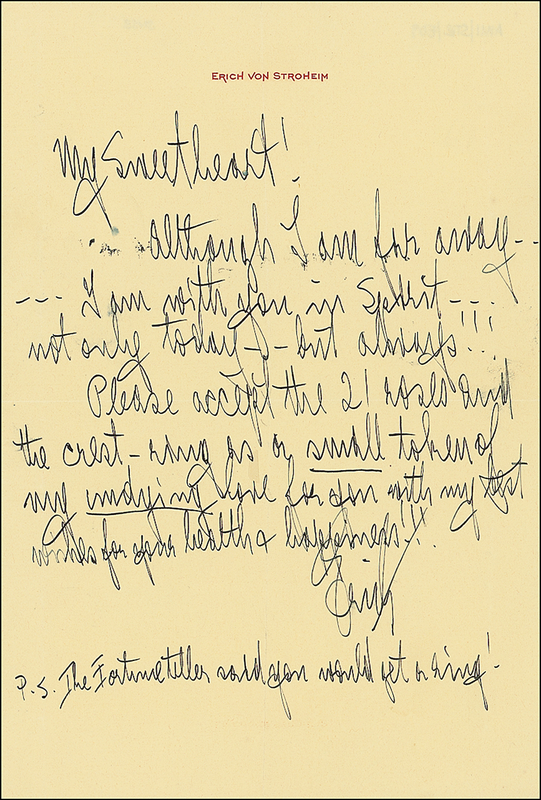 ERICH VON STROHEIM
My Sweetheart!
although I am far away--
--- I am with you in Spirit ---
not only today -- but always!!!
Please accept the 21 roses and
the crest-ring as a small token of
my undying love for you with my best
wishes for your health & happiness!!
Erich
P.S. The Fortuneteller said you would get a ring!